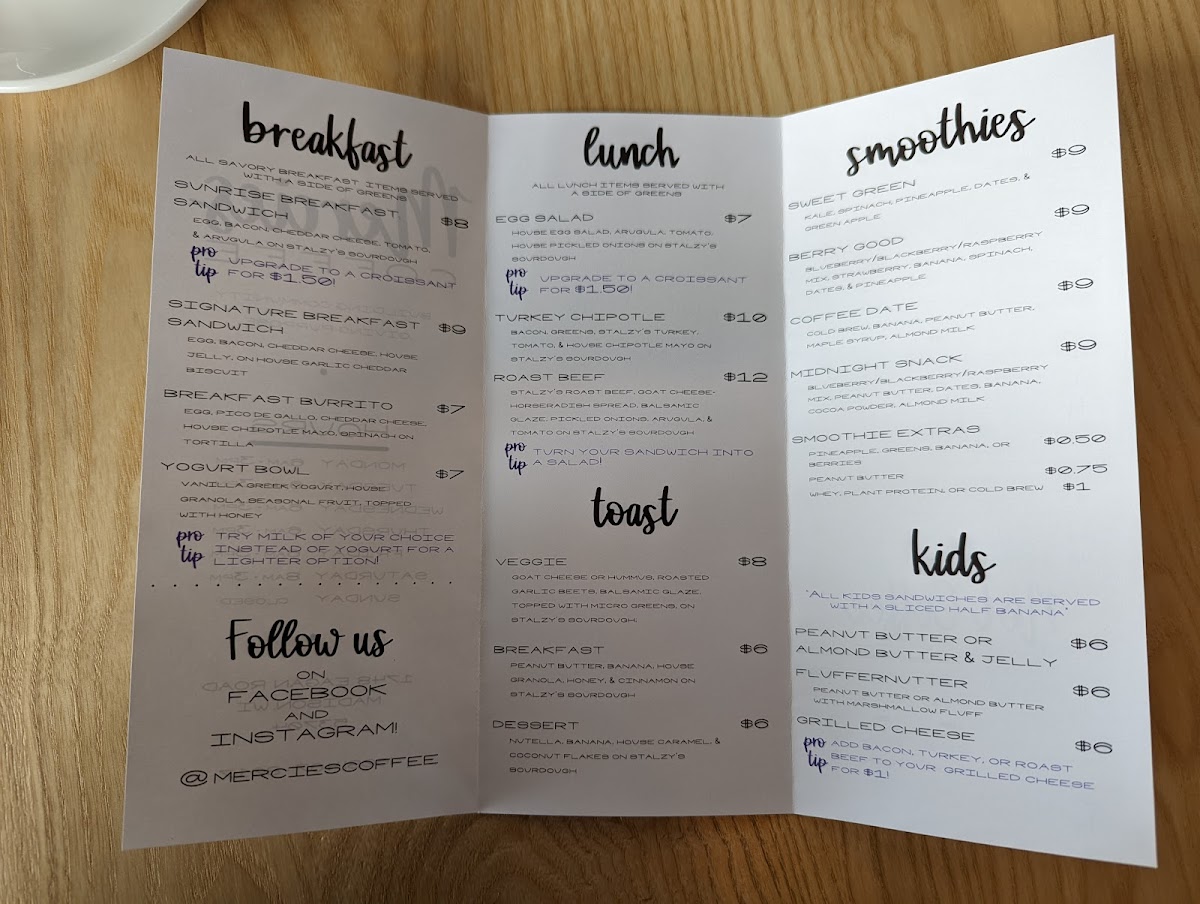 breakfast
ALL SAVORY BREAKFAST ITEMS SERVED
WITH A SIDE OF GREENS
SUNRISE BREAKFAST
SANDWICH $8
EGG, BACON, CHEDDAR CHEESE, TOMATO,
& ARUGULA ON STALZY'S SOURDOUGH
pro tip UPGRADE TO A CROISSANT
FOR $1.50!
SIGNATURE BREAKFAST
SANDWICH $9
EGG, BACON, CHEDDAR CHEESE, HOUSE
JELLY, ON HOUSE GARLIC CHEDDAR
BISCUIT
BREAKFAST BURRITO $7
EGG, PICO DE GALLO, CHEDDAR CHEESE,
HOUSE CHIPOTLE MAYO, SPINACH ON
TORTILLA
YOGURT BOWL $7
VANILLA GREEK YOGURT, HOUSE
GRANOLA, SEASONAL FRUIT, TOPPED
WITH HONEY
pro tip TRY MILK OF YOUR CHOICE
INSTEAD OF YOGURT FOR A
LIGHTER OPTION!
Follow us
ON
FACEBOOK
AND
INSTAGRAM!
@MERCIESCOFFEE
lunch
ALL LUNCH ITEMS SERVED WITH
A SIDE OF GREENS
EGG SALAD $7
HOUSE EGG SALAD, ARUGULA, TOMATO,
HOUSE PICKLED ONIONS ON STALZY'S
SOURDOUGH
pro tip UPGRADE TO A CROISSANT
FOR $1.50!
TURKEY CHIPOTLE $10
BACON, GREENS, STALZY'S TURKEY,
TOMATO, & HOUSE CHIPOTLE MAYO ON
STALZY'S SOURDOUGH
ROAST BEEF $12
STALZY'S ROAST BEEF, GOAT CHEESE-
HORSERADISH SPREAD, BALSAMIC
GLAZE, PICKLED ONIONS, ARUGULA, &
TOMATO ON STALZY'S SOURDOUGH
pro tip TURN YOUR SANDWICH INTO
A SALAD!
toast
VEGGIE $8
GOAT CHEESE OR HUMMUS, ROASTED
GARLIC BEETS, BALSAMIC GLAZE,
TOPPED WITH MICRO GREENS, ON
STALZY'S SOURDOUGH.
BREAKFAST $6
PEANUT BUTTER, BANANA, HOUSE
GRANOLA, HONEY, & CINNAMON ON
STALZY'S SOURDOUGH
DESSERT $6
NUTELLA, BANANA, HOUSE CARAMEL, &
COCONUT FLAKES ON STALZY'S
SOURDOUGH
smoothies
SWEET GREEN $9
KALE, SPINACH, PINEAPPLE, DATES, &
GREEN APPLE
BERRY GOOD $9
BLUEBERRY/BLACKBERRY/RASPBERRY
MIX, STRAWBERRY, BANANA, SPINACH,
DATES, & PINEAPPLE
COFFEE DATE $9
COLD BREW, BANANA, PEANUT BUTTER,
MAPLE SYRUP, ALMOND MILK
MIDNIGHT SNACK $9
BLUEBERRY/BLACKBERRY/RASPBERRY
MIX, PEANUT BUTTER, DATES, BANANA,
COCOA POWDER, ALMOND MILK
SMOOTHIE EXTRAS
PINEAPPLE, GREENS, BANANA, OR $0.50
BERRIES
PEANUT BUTTER $0.75
WHEY, PLANT PROTEIN, OR COLD BREW $1
kids
*ALL KIDS SANDWICHES ARE SERVED
WITH A SLICED HALF BANANA*
PEANUT BUTTER OR $6
ALMOND BUTTER & JELLY
FLUFFERNUTTER $6
PEANUT BUTTER OR ALMOND BUTTER
WITH MARSHMALLOW FLUFF
GRILLED CHEESE $6
pro tip ADD BACON, TURKEY, OR ROAST
BEEF TO YOUR GRILLED CHEESE
FOR $1!